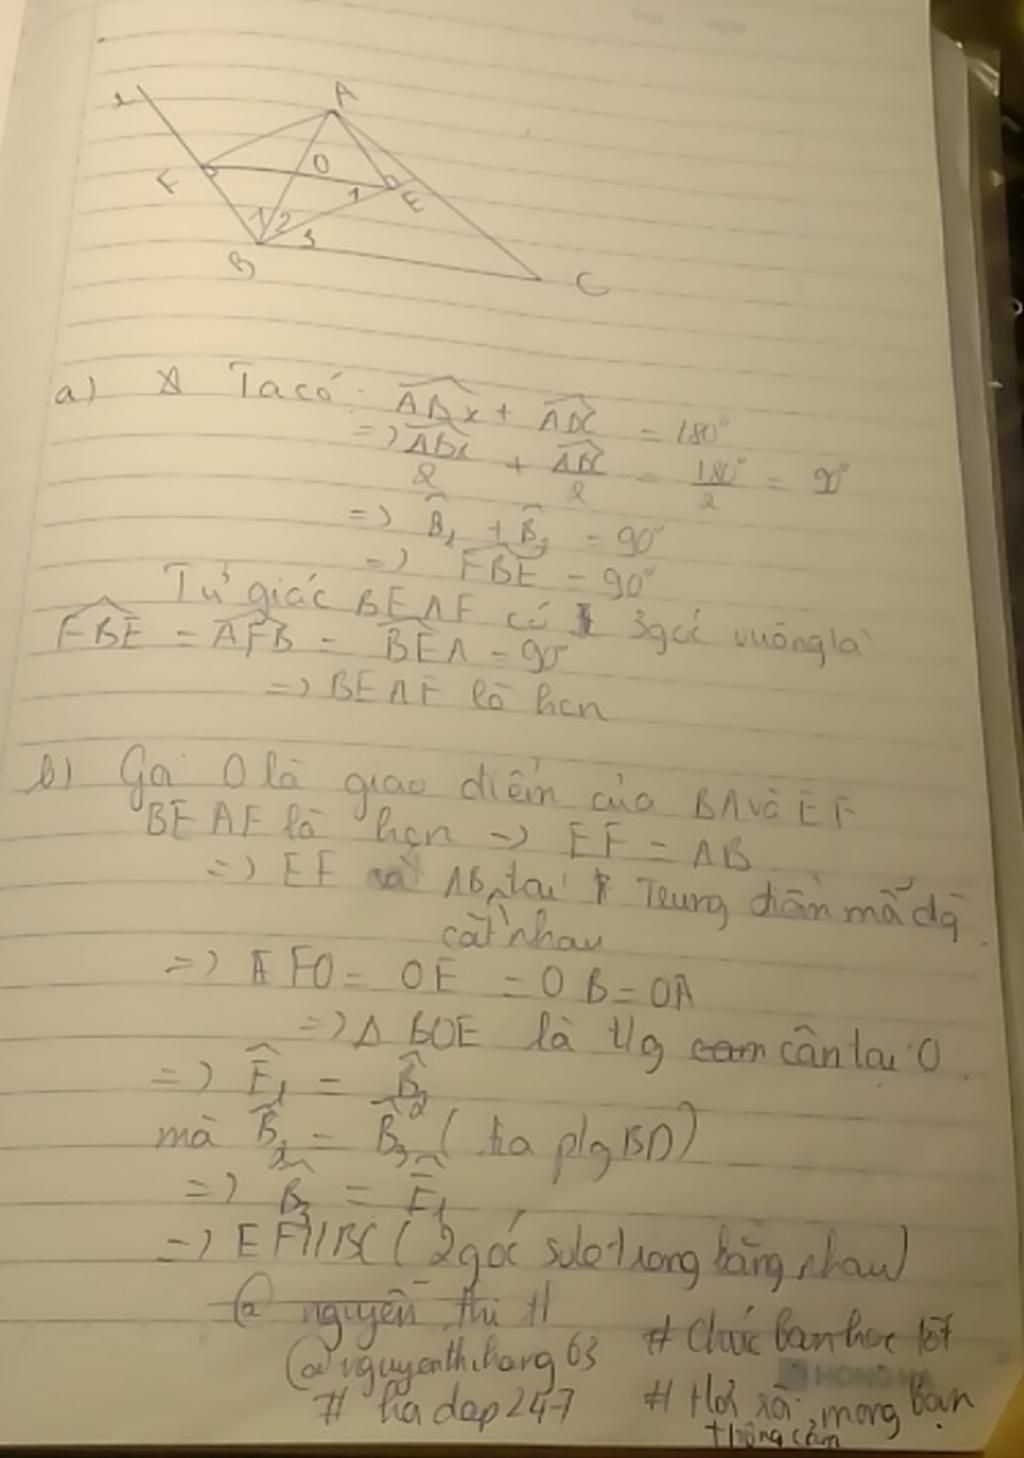 x
A
O
F
1
E
1 2 3
B
C
a) Ta có: ABx + ABC = 180°
=> ABx/2 + ABC/2 = 180°/2 = 90°
=> B1 + B2 = 90°
=> FBE = 90°
Tứ giác BEAF có 3 góc vuông là
FBE = AFB = BEA = 90°
=> BEAF là hcn
b) Gọi O là giao điểm của BA và EF
BEAF là hcn => EF = AB
=> EF và AB tại Trung điểm mỗi đg
cắt nhau
=> FO = OE = OB = OA
=> Δ BOE là t/g cân tại O.
=> E1 = B2
mà B2 = B3 (tia p/g BD)
=> B3 = E1
=> EF//BC (2 góc sole trong bằng nhau)
@ nguyễn thi H
@nguyenthihang63
# Chúc bạn học tốt
HONG HA
# hadap247
# Hơi xấu, mong bạn
thông cảm